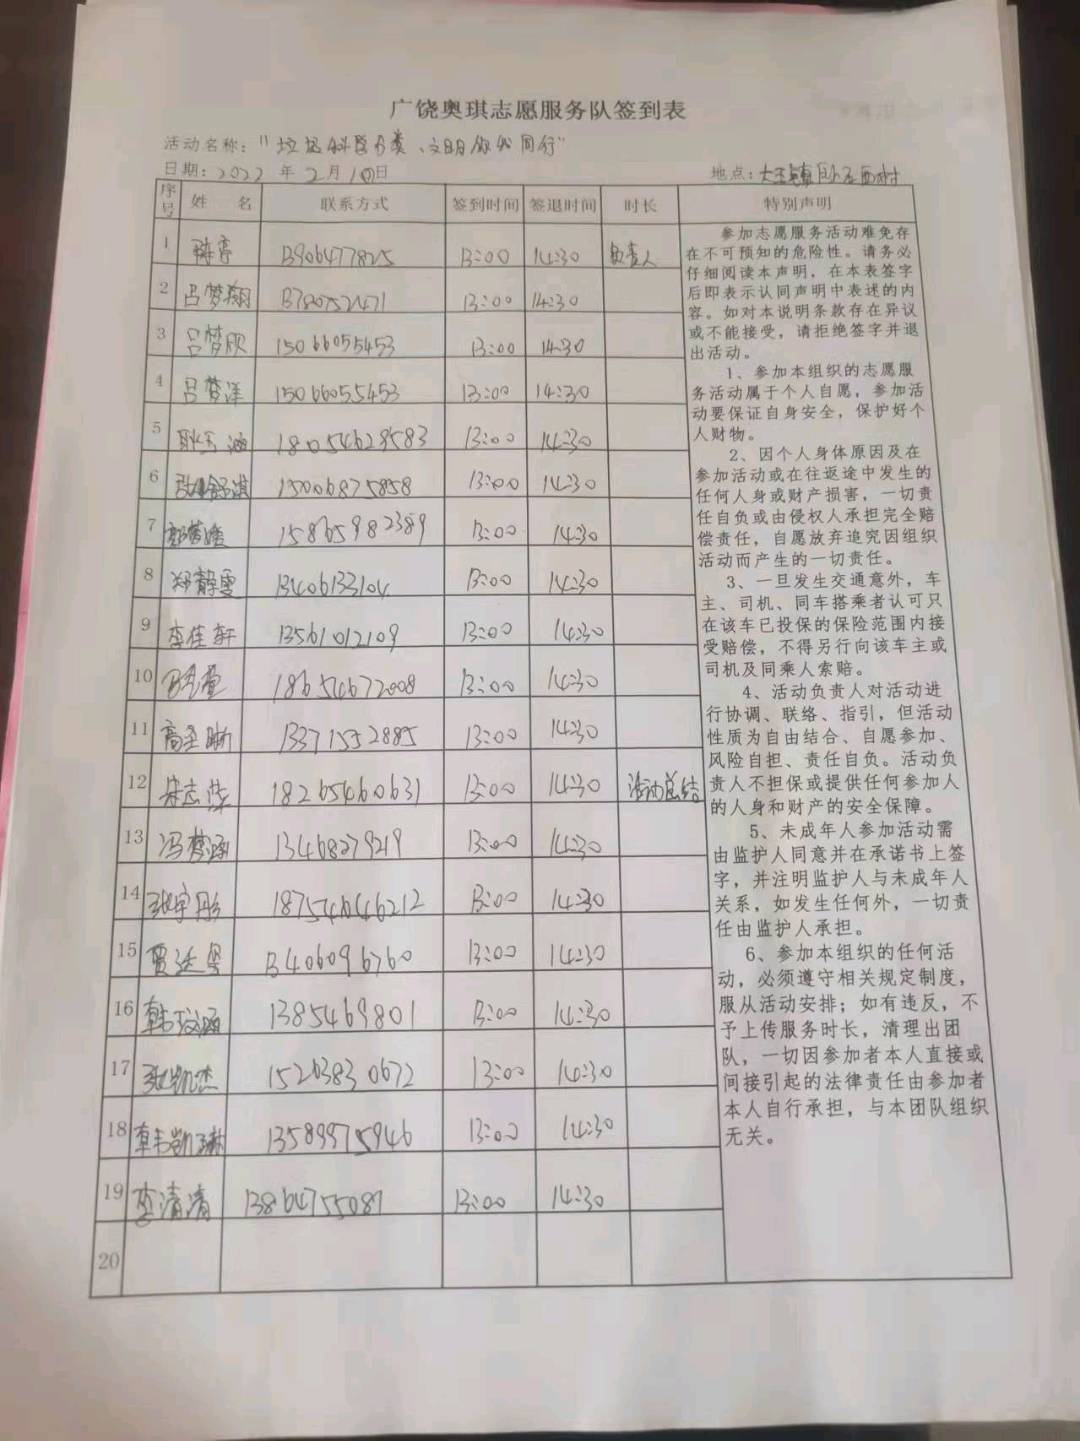 广饶奥琪志愿服务队签到表
活动名称："垃圾科学分类、文明你我同行"
日期：2022 年 2 月 10日 地点：大王镇 西村
序号 姓 名 联系方式 签到时间 签退时间 时长 特别声明
1 13906477825 13:00 14:30 负责人
2 吕梦翔 13780752471 13:00 14:30
3 吕梦欣 15066055453 13:00 14:30
4 吕梦洋 15066055453 13:00 14:30
5 耿玉涵 18054629583 13:00 14:30
6 15006875858 13:00 14:30
7 15865982389 13:00 14:30
8 郑静雯 13406133104 13:00 14:30
9 李佳轩 13561012109 13:00 14:30
10 18654672008 13:00 14:30
11 高圣 13371552885 13:00 14:30
12 宋志 18265460631 13:00 14:30 活动总结
13 冯梦涵 13468279219 13:00 14:30
14 张宇彤 18754646212 13:00 14:30
15 贾 13406096760 13:00 14:30
16 韩 涵 1385469801 13:00 14:30
17 张凯杰 15263830672 13:00 14:30
18 韩凯琳 13589975946 13:00 14:30
19 李清清 13864755087 13:00 14:30
20
参加志愿服务活动难免存
在不可预知的危险性。请务必
仔细阅读本声明，在本表签字
后即表示认同声明中表述的内
容。如对本说明条款存在异议
或不能接受，请拒绝签字并退
出活动。
1、参加本组织的志愿服
务活动属于个人自愿，参加活
动要保证自身安全，保护好个
人财物。
2、因个人身体原因及在
参加活动或在往返途中发生的
任何人身或财产损害，一切责
任自负或由侵权人承担完全赔
偿责任，自愿放弃追究因组织
活动而产生的一切责任。
3、一旦发生交通意外，车
主、司机、同车搭乘者认可只
在该车已投保的保险范围内接
受赔偿，不得另行向该车主或
司机及同乘人索赔。
4、活动负责人对活动进
行协调、联络、指引，但活动
性质为自由结合、自愿参加、
风险自担、责任自负。活动负
责人不担保或提供任何参加人
的人身和财产的安全保障。
5、未成年人参加活动需
由监护人同意并在承诺书上签
字，并注明监护人与未成年人
关系，如发生任何外，一切责
任由监护人承担。
6、参加本组织的任何活
动，必须遵守相关规定制度，
服从活动安排；如有违反，不
予上传服务时长，清理出团
队，一切因参加者本人直接或
间接引起的法律责任由参加者
本人自行承担，与本团队组织
无关。